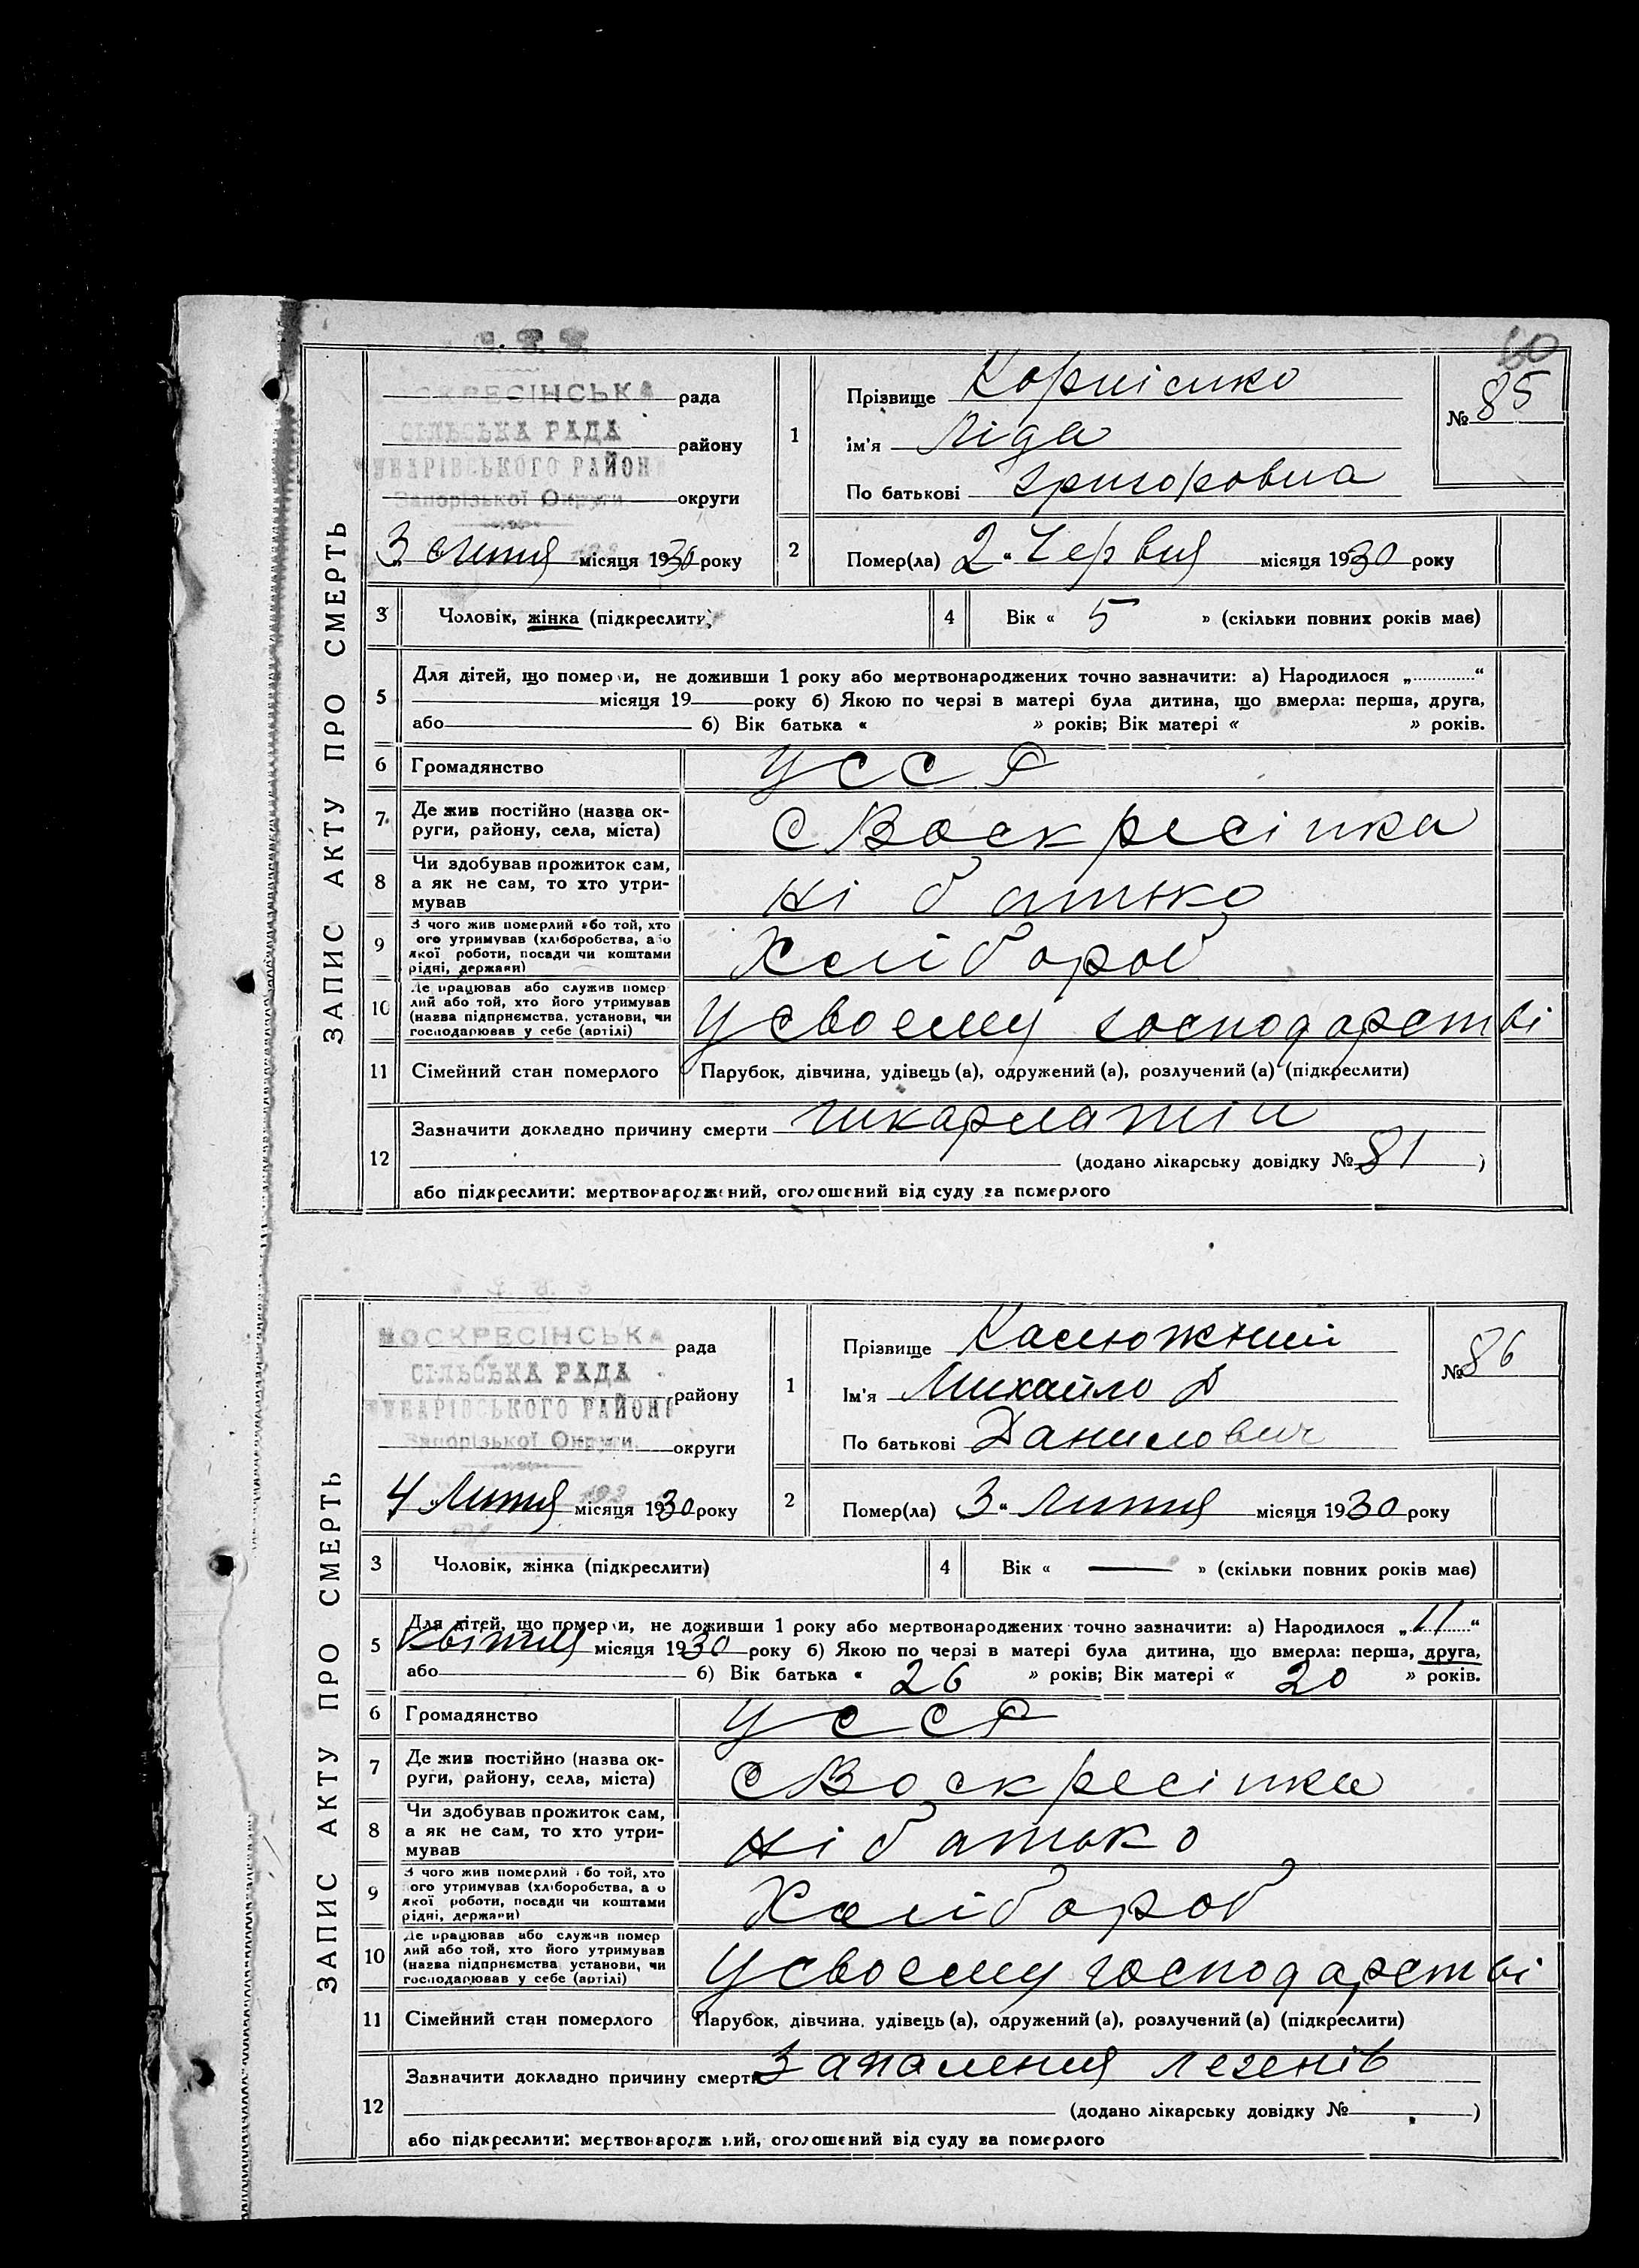 60
ЗАПИС АКТУ ПРО СМЕРТЬ
рада
СІЛЬСЬКА РАДА
району
Запорізької Округи округи
3 Липня місяця 1930 року
1
Прізвище Корнієнко
ім'я Ліда
По батькові Григоровна
№ 85
2
Помер(ла) 2 " Червня місяця 1930 року
3 Чоловік, жінка (підкреслити)
4 Вік « 5 » (скільки повних років має)
5
Для дітей, що померли, не доживши 1 року або мертвонароджених точно зазначити: а) Народилося „ “
місяця 19 року б) Якою по черзі в матері була дитина, що вмерла: перша, друга,
або б) Вік батька « » років; Вік матері « » років.
6 Громадянство УССР
7 Де жив постійно (назва ок-
руги, району, села, міста)
с Воскресінка
8
Чи здобував прожиток сам,
а як не сам, то хто утри-
мував
Ні батько
9
З чого жив померлий або той, хто
його утримував (хліборобства, або
якої роботи, посади чи коштами
рідні, держави)
Хлібороб
10
Де працював або служив помер
лий або той, хто його утримував
(назва підприємства, установи, чи
господарював у себе (артілі)
У своєму господарстві
11 Сімейний стан померлого Парубок, дівчина, удівець (а), одружений (а), розлучений (а) (підкреслити)
12
Зазначити докладно причину смерти шкарлатін
(додано лікарську довідку № 81 )
або підкреслити: мертвонароджений, оголошений від суду за померлого
ЗАПИС АКТУ ПРО СМЕРТЬ
ВОСКРЕСІНСЬКА рада
СІЛЬСЬКА РАДА
району
Запорізької Округи округи
4 Липня місяця 1930 року
1
Прізвище Калюжний
Ім'я Михайло Д
По батькові Данилович
№ 86
2
Помер(ла) 3 " Липня місяця 1930 року
3 Чоловік, жінка (підкреслити)
4 Вік « — » (скільки повних років має)
5
Для дітей, що померли, не доживши 1 року або мертвонароджених точно зазначити: а) Народилося „ 11 “
Квітня місяця 1930 року б) Якою по черзі в матері була дитина, що вмерла: перша, друга,
або б) Вік батька « 26 » років; Вік матері « 20 » років.
6 Громадянство УССР
7 Де жив постійно (назва ок-
руги, району, села, міста)
с Воскресінка
8
Чи здобував прожиток сам,
а як не сам, то хто утри-
мував
Ні батько
9
З чого жив померлий або той, хто
його утримував (хліборобства, або
якої роботи, посади чи коштами
рідні, держави)
Хлібороб
10
Де працював або служив помер
лий або той, хто його утримував
(назва підприємства, установи, чи
господарював у себе (артілі)
У своєму господарстві
11 Сімейний стан померлого Парубок, дівчина, удівець (а), одружений (а), розлучений (а) (підкреслити)
12
Зазначити докладно причину смерти Запалення легенів
(додано лікарську довідку № )
або підкреслити: мертвонароджений, оголошений від суду за померлого